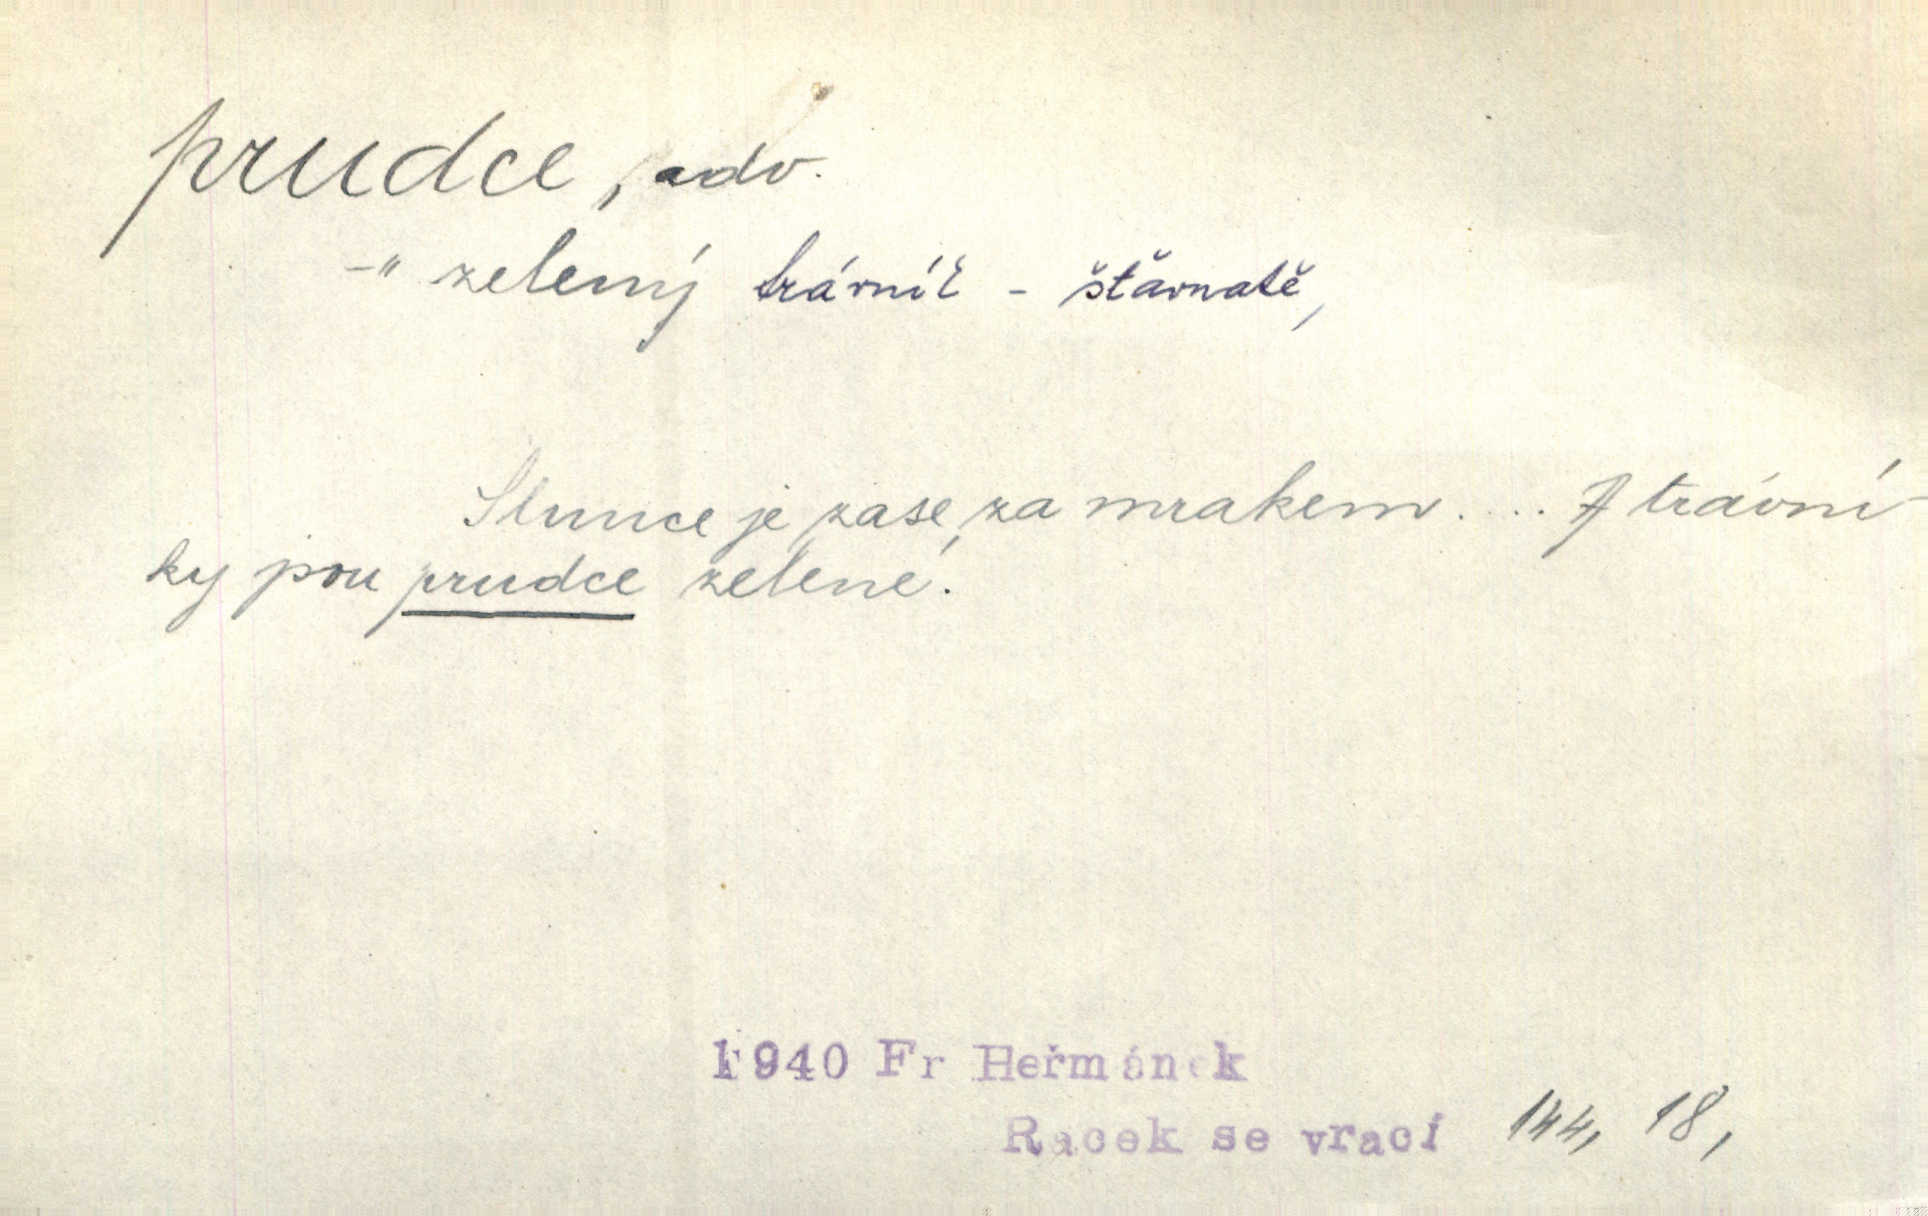 prudce, adv.
-" zelený trávník - šťavnatě,
Slunce je zase za mrakem.... I trávní-
ky jsou prudce zelené.
1940 Fr Heřmánek
Racek se vrací 144, 18,